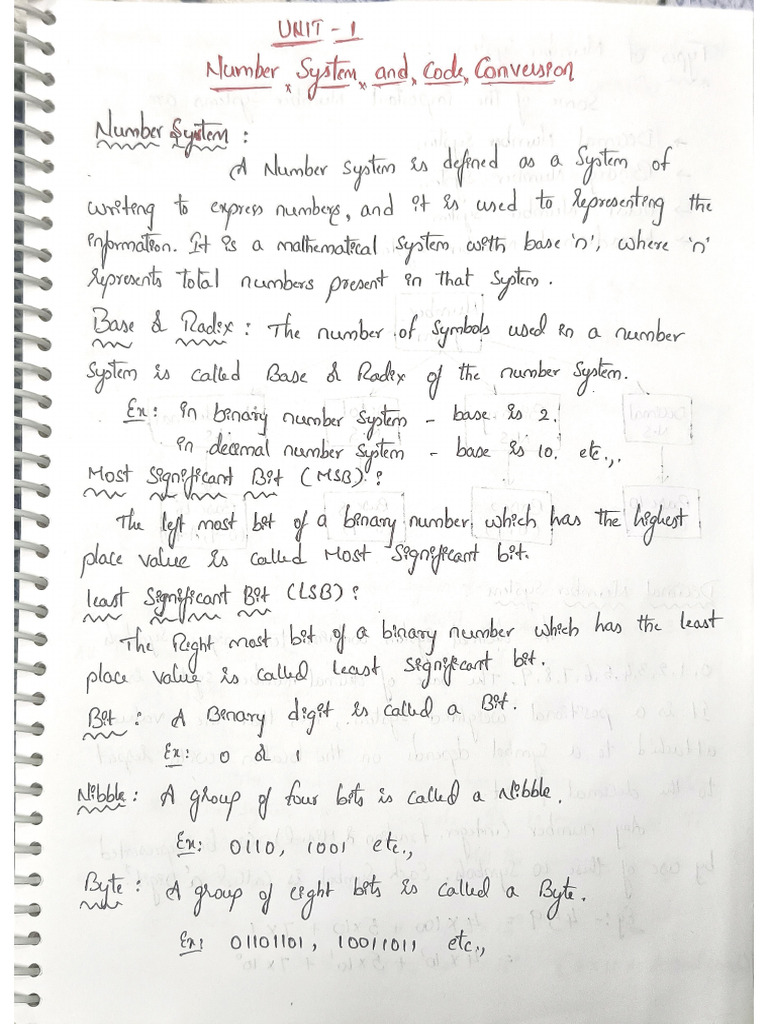 UNIT - 1
Number System and Code Conversion
Number System :
A Number system is defined as a System of
writing to express numbers, and it is used to representing the
information. It is a mathematical system with base 'n', where 'n'
represents total numbers present in that system.
Base & Radix : The number of symbols used in a number
system is called Base & Radix of the number system.
Ex: in binary number system - base is 2.
in decimal number system - base is 10. etc.,.
Most Significant Bit (MSB) :
The left most bit of a binary number which has the highest
place value is called Most significant bit.
Least Significant Bit (LSB) :
The Right most bit of a binary number which has the least
place value is called least significant bit.
Bit : A Binary digit is called a Bit.
Ex: 0 & 1
Nibble : A group of four bits is called a Nibble.
Ex: 0110, 1001 etc.,
Byte : A group of eight bits is called a Byte.
Ex: 01101101, 10011011 etc.,